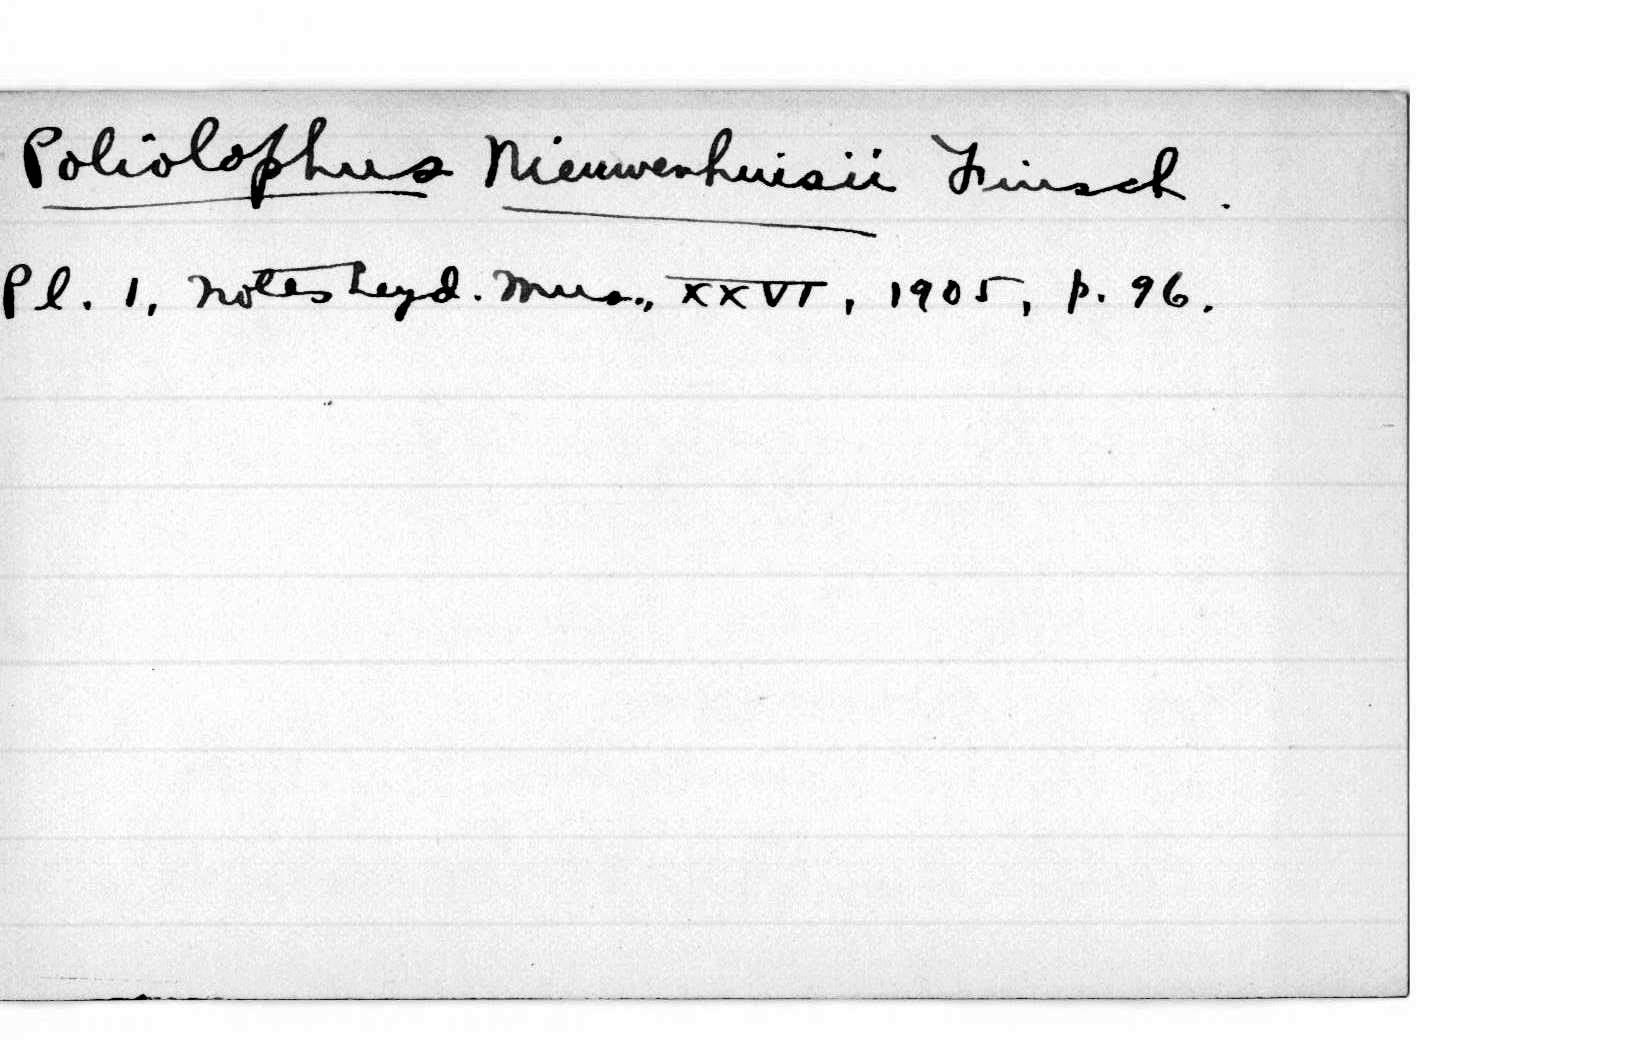 Poliolophus Nieuwenhuisii Finsch.
Pl. 1, Notes Leyd. Mus., XXVI, 1905, p. 96.